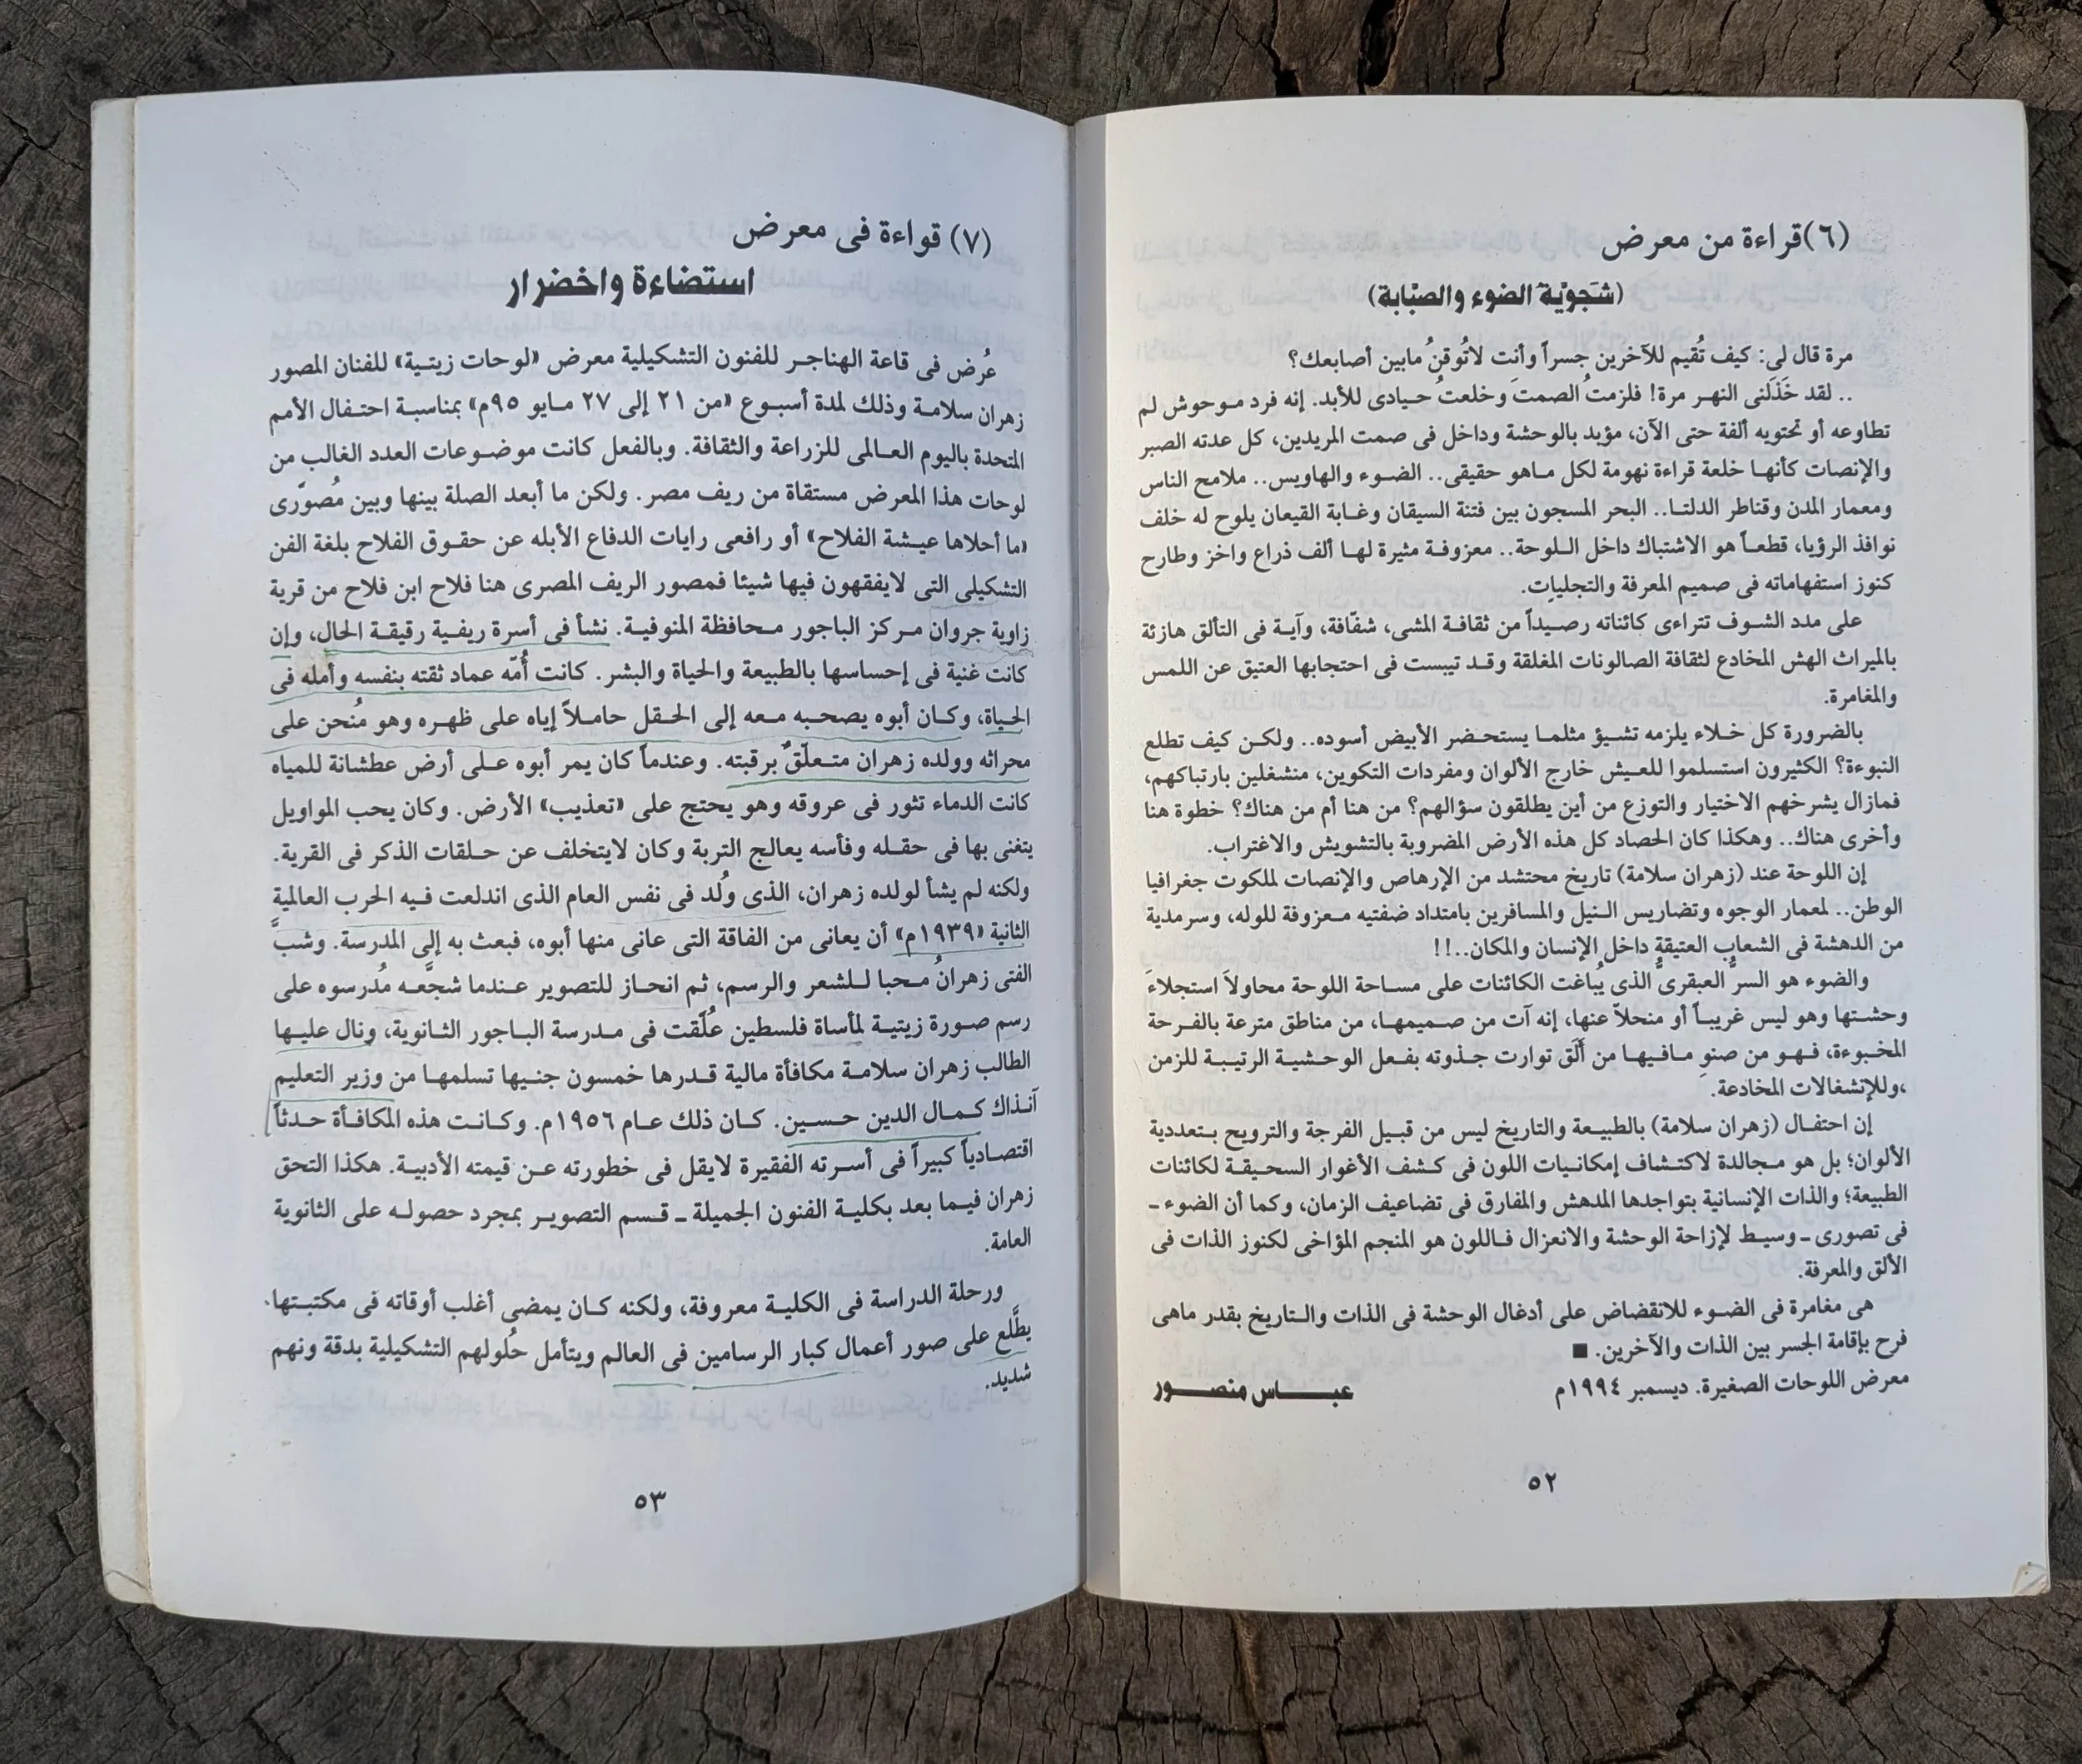 (٦) قراءة من معرض
(شَجويّة الضوء والصبّابة)
مرة قال لى: كيف تُقيم للآخرين جسراً وأنت لاتُوقنُ مابين أصابعك؟
.. لقد خَذَلَنى النهر مرة! فلزمتُ الصمتَ وخلعتُ حيادى للأبد. إنه فرد موحوش لم
تطاوعه أو تحتويه ألفة حتى الآن، مؤبد بالوحشة وداخل فى صمت المريدين، كل عدته الصبر
والإنصات كأنها خلعة قراءة نهومة لكل ماهو حقيقى.. الضوء والهاويس.. ملامح الناس
ومعمار المدن وقناطر الدلتا.. البحر المسجون بين فتنة السيقان وغابة القيعان يلوح له خلف
نوافذ الرؤيا، قطعاً هو الاشتباك داخل اللوحة.. معزوفة مثيرة لها ألف ذراع واخز وطارح
كنوز استفهاماته فى صميم المعرفة والتجليات.
على مدد الشوف تتراءى كائناته رصيداً من ثقافة المشى، شفّافة، وآية فى التألق هازئة
بالميراث الهش المخادع لثقافة الصالونات المغلقة وقد تيبست فى احتجابها العتيق عن اللمس
والمغامرة.
بالضرورة كل خلاء يلزمه تشيؤ مثلما يستحضر الأبيض أسوده.. ولكن كيف تطلع
النبوءة؟ الكثيرون استسلموا للعيش خارج الألوان ومفردات التكوين، منشغلين بارتباكهم،
فمازال يشرخهم الاختيار والتوزع من أين يطلقون سؤالهم؟ من هنا أم من هناك؟ خطوة هنا
وأخرى هناك.. وهكذا كان الحصاد كل هذه الأرض المضروبة بالتشويش والاغتراب.
إن اللوحة عند (زهران سلامة) تاريخ محتشد من الإرهاص والإنصات لملكوت جغرافيا
الوطن.. لمعمار الوجوه وتضاريس النيل والمسافرين بامتداد ضفتيه معزوفة للوله، وسرمدية
من الدهشة فى الشعاب العتيقة داخل الإنسان والمكان..!!
والضوء هو السرُّ العبقرىُّ الذى يُباغت الكائنات على مساحة اللوحة محاولاً استجلاءَ
وحشتها وهو ليس غريباً أو منحلاّ عنها، إنه آت من صميمها، من مناطق مترعة بالفرحة
المخبوءة، فهو من صنوِ مافيها من أَلَق توارت جذوته بفعل الوحشية الرتيبة للزمن
،وللإنشغالات المخادعة.
إن احتفال (زهران سلامة) بالطبيعة والتاريخ ليس من قبيل الفرجة والترويح بتعددية
الألوان؛ بل هو مجالدة لاكتشاف إمكانيات اللون فى كشف الأغوار السحيقة لكائنات
الطبيعة؛ والذات الإنسانية بتواجدها المدهش والمفارق فى تضاعيف الزمان، وكما أن الضوء ـ
فى تصورى ـ وسيط لإزاحة الوحشة والانعزال فاللون هو المنجم المؤاخى لكنوز الذات فى
الألق والمعرفة.
هى مغامرة فى الضوء للانقضاض على أدغال الوحشة فى الذات والتاريخ بقدر ماهى
فرح بإقامة الجسر بين الذات والآخرين. ■
معرض اللوحات الصغيرة. ديسمبر ١٩٩٤م
عباس منصور
٥٢
(٧) قواءة فى معرض
استضاءة واخضرار
عُرض فى قاعة الهناجر للفنون التشكيلية معرض «لوحات زيتية» للفنان المصور
زهران سلامة وذلك لمدة أسبوع «من ٢١ إلى ٢٧ مايو ٩٥م» بمناسبة احتفال الأمم
المتحدة باليوم العالمى للزراعة والثقافة. وبالفعل كانت موضوعات العدد الغالب من
لوحات هذا المعرض مستقاة من ريف مصر. ولكن ما أبعد الصلة بينها وبين مُصوّرى
«ما أحلاها عيشة الفلاح» أو رافعى رايات الدفاع الأبله عن حقوق الفلاح بلغة الفن
التشكيلى التى لايفقهون فيها شيئا فمصور الريف المصرى هنا فلاح ابن فلاح من قرية
زاوية جروان مركز الباجور محافظة المنوفية. نشأ فى أسرة ريفية رقيقة الحال، وإن
كانت غنية فى إحساسها بالطبيعة والحياة والبشر. كانت أُمّه عماد ثقته بنفسه وأمله فى
الحياة، وكان أبوه يصحبه معه إلى الحقل حاملاً إياه على ظهره وهو مُنحن على
محراثه وولده زهران متعلّقٌ برقبته. وعندما كان يمر أبوه على أرض عطشانة للمياه
كانت الدماء تثور فى عروقه وهو يحتج على «تعذيب» الأرض. وكان يحب المواويل
يتغنى بها فى حقله وفأسه يعالج التربة وكان لايتخلف عن حلقات الذكر فى القرية.
ولكنه لم يشأ لولده زهران، الذى ولُد فى نفس العام الذى اندلعت فيه الحرب العالمية
الثانية «١٩٣٩م» أن يعانى من الفاقة التى عانى منها أبوه، فبعث به إلى المدرسة. وشبَّ
الفتى زهرانُ محبا للشعر والرسم، ثم انحاز للتصوير عندما شجَّعه مُدرسوه على
رسم صورة زيتية لمأساة فلسطين عُلّقت فى مدرسة الباجور الثانوية، ونال عليها
الطالب زهران سلامة مكافأة مالية قدرها خمسون جنيها تسلمها من وزير التعليم
آنذاك كمال الدين حسين. كان ذلك عام ١٩٥٦م. وكانت هذه المكافأة حدثاً
اقتصادياً كبيراً فى أسرته الفقيرة لايقل فى خطورته عن قيمته الأدبية. هكذا التحق
زهران فيما بعد بكلية الفنون الجميلة ـ قسم التصوير بمجرد حصوله على الثانوية
العامة.
ورحلة الدراسة فى الكلية معروفة، ولكنه كان يمضى أغلب أوقاته فى مكتبتها،
يطَّلع على صور أعمال كبار الرسامين فى العالم ويتأمل حُلولهم التشكيلية بدقة ونهم
شديد.
٥٣